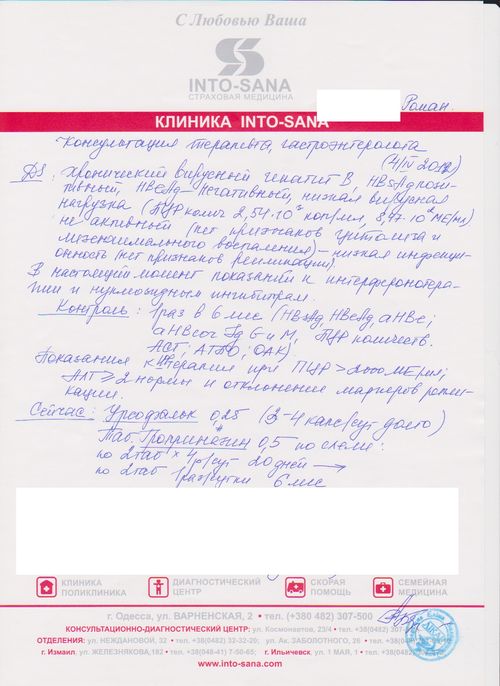 С Любовью Ваша
INTO-SANA
СТРАХОВАЯ МЕДИЦИНА
Роман.
КЛИНИКА INTO-SANA
Консультация терапевта, гастроэнтеролога
(4/IV 2012)
DS: Хронический вирусный гепатит В, HBsAg пози-
тивный, HBeAg – негативный, низкая вирусная
нагрузка (ПЦР колич 2,54·10³ коп/мл, 8,47·10² МЕ/мл)
не активный (нет признаков цитолиза и
мезенхимального воспаления) – низкая инфекци-
онность (нет признаков репликации).
В настоящей момент показаний к интерферонотера-
пии и нуклеозидным ингибиторам.
Контроль: 1 раз в 6 мес (HBsAg, HBeAg, aHBe;
aHBcor Jg G и M, ПЦР количеств.
АСТ; АТПО; ОАК).
Показания к терапии при ПЦР > 2000 МЕ/мл;
АЛТ ≥ 2 нормы и отклонение маркеров репли-
кации.
Сейчас: Урсофальк 0,25 (3-4 капс/сут долго)
Таб. Гроприназин 0,5 по схеме:
по 2 таб × 4 р/сут 20 дней →
по 2 таб 1 раз/сутки 6 мес
КЛИНИКА
ПОЛИКЛИНИКА
ДИАГНОСТИЧЕСКИЙ
ЦЕНТР
СКОРАЯ
ПОМОЩЬ
СЕМЕЙНАЯ
МЕДИЦИНА
г. Одесса, ул. ВАРНЕНСКАЯ, 2 • тел. (+380 482) 307-500
КОНСУЛЬТАЦИОННО-ДИАГНОСТИЧЕСКИЙ ЦЕНТР: ул. Космонавтов, 23/4 • тел. +38(0482) 307-
ОТДЕЛЕНИЯ: ул. НЕЖДАНОВОЙ, 32 • тел. +38(0482) 32-32-20; ул. Ак. ЗАБОЛОТНОГО, 26 • тел. +38(0482)
г. Измаил, ул. ЖЕЛЕЗНЯКОВА,182 • тел. +38(048-41) 7-50-65; г. Ильичевск, ул. 1 МАЯ, 1 • тел. +38(048)
www.into-sana.com